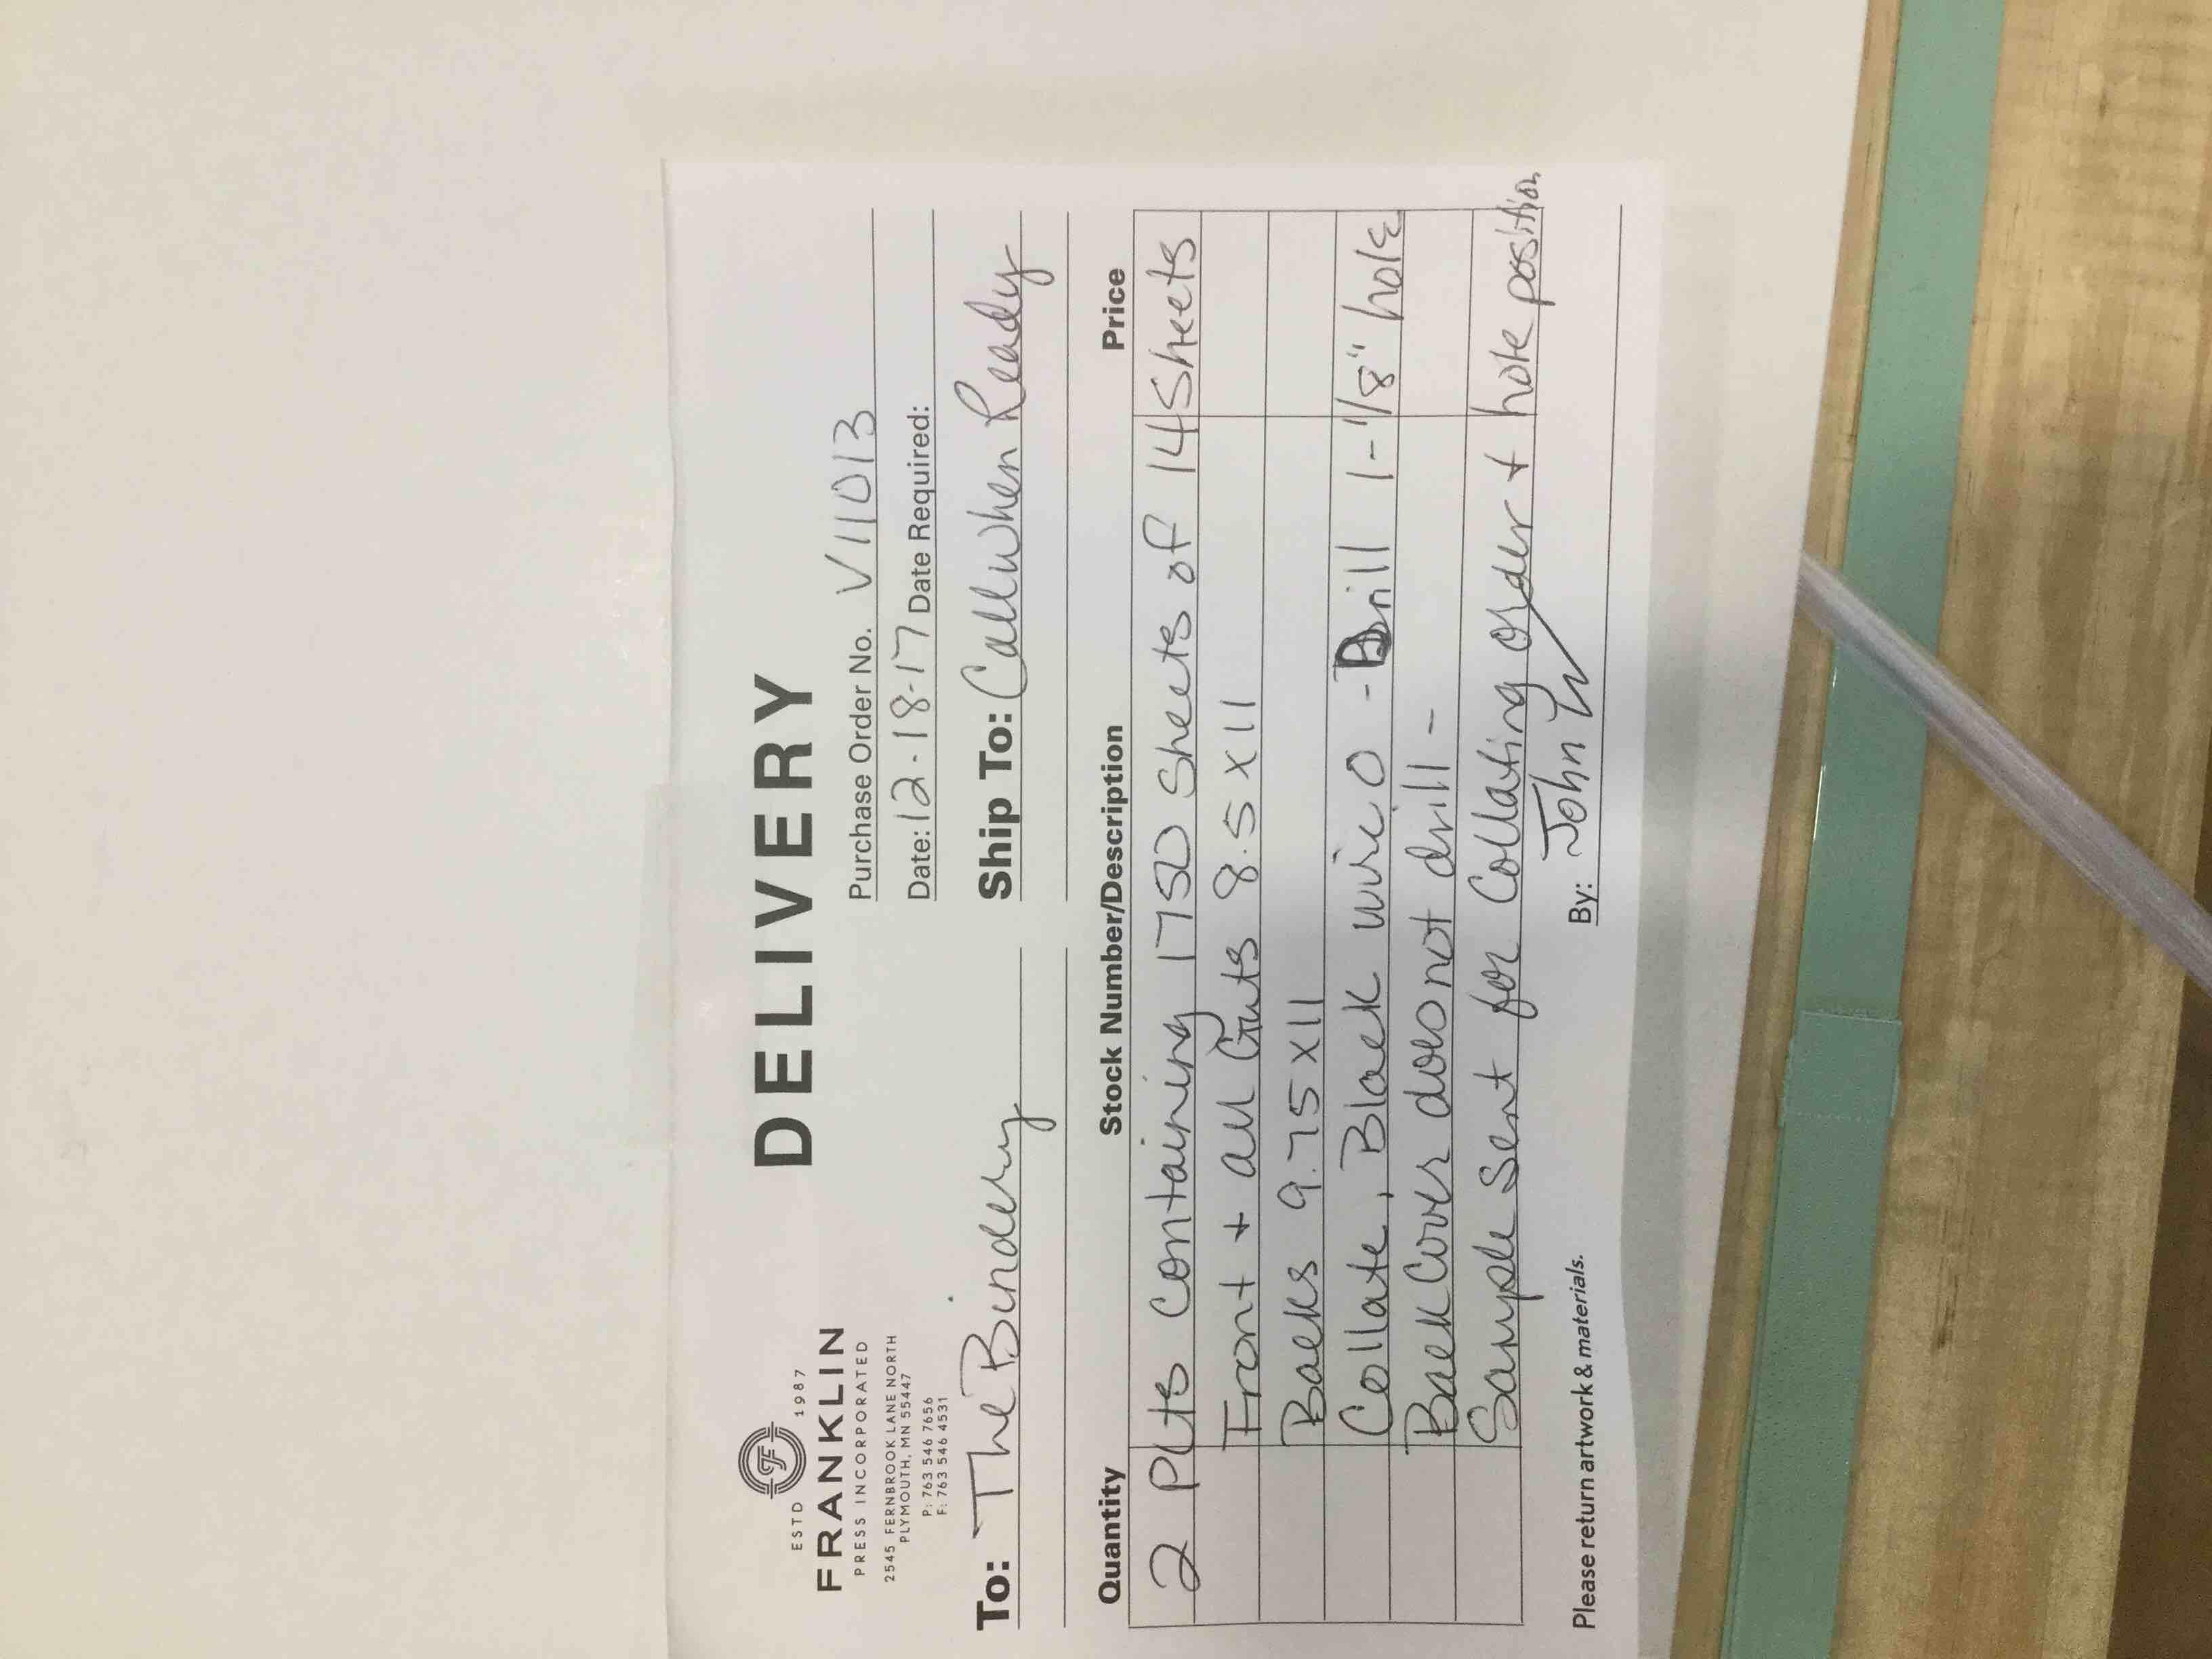 ESTD 1987
FRANKLIN
PRESS INCORPORATED
2545 FERNBROOK LANE NORTH
PLYMOUTH, MN 55447
P: 763 546 7656
F: 763 546 4531
DELIVERY
Purchase Order No. V11013
Date: 12-18-17 Date Required:
To: The Bindery
Ship To: Call when Ready
Quantity Stock Number/Description Price
2 Plts Containing 1750 Sheets of 14 Sheets
Front + all Guts 8.5 x 11
Backs 9.75 x 11
Collate, Black wire O - Drill 1-1/8" hole
Back Cover does not drill -
Sample Sent for Collating order + hole position
Please return artwork & materials.
By: John W